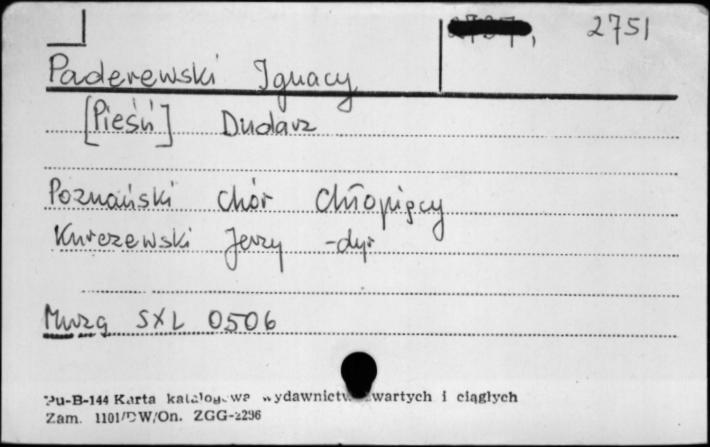 2751
Paderewski Ignacy
[Pieśń] Dudarz
Poznański Chór Chłopięcy
Kurczewski Jerzy -dyr
Muza SXL 0506
Pu-B-144 Karta katalogowa wydawnictw zwartych i ciągłych
Zam. 1101/DW/On. ZGG-2296